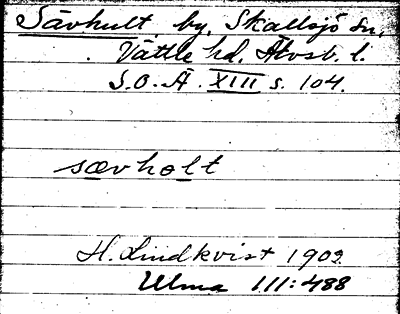 Sävhult, by, Skallsjö sn,
Vättle hd. Älvsb. l.
S.O.Ä. XIII s. 104.
sævholt
H. Lindkvist 1903
Ulma 111:488